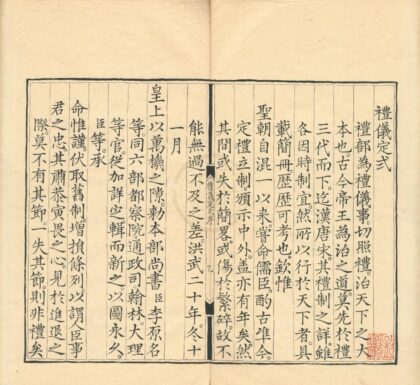 禮儀定式
禮部為禮儀事切照禮治天下之大
本也古今帝王為治之道莫先於禮
三代而下迄漢唐宋其禮制之詳雖
各因時制宜然所以行於天下者具
載簡冊歴歴可考也欽惟
聖朝自混一以來嘗命儒臣酌古準今
定禮立制頒示中外盖亦有年矣然
其間或失於簡畧或傷於繁碎故不
能無過不及之差洪武二十年冬十
一月
皇上以萬機之隙勅本部尚書臣李原名
等同六部都察院通政司翰林大理
等官從加詳定輯而新之以圖永久
臣等承
命惟謹伏取舊制增損條列以謂人臣事
君之忠其肅恭寅畏之心見於進退之
際莫不有其節一失其節則非禮矣